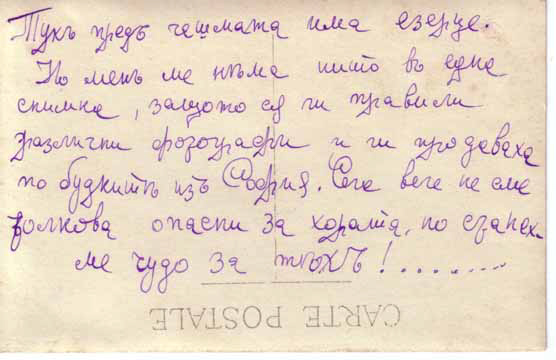 Тукъ предъ чешмата има езерце.
Но менъ ме нѣма нито въ една
снимка, защото сѫ ги правили
различни фотографи и ги продаваха
по будкитѣ изъ София. Сега вече не сме
толкова опасни за хората, но станах-
ме чудо за тѣхъ!........
CARTE POSTALE